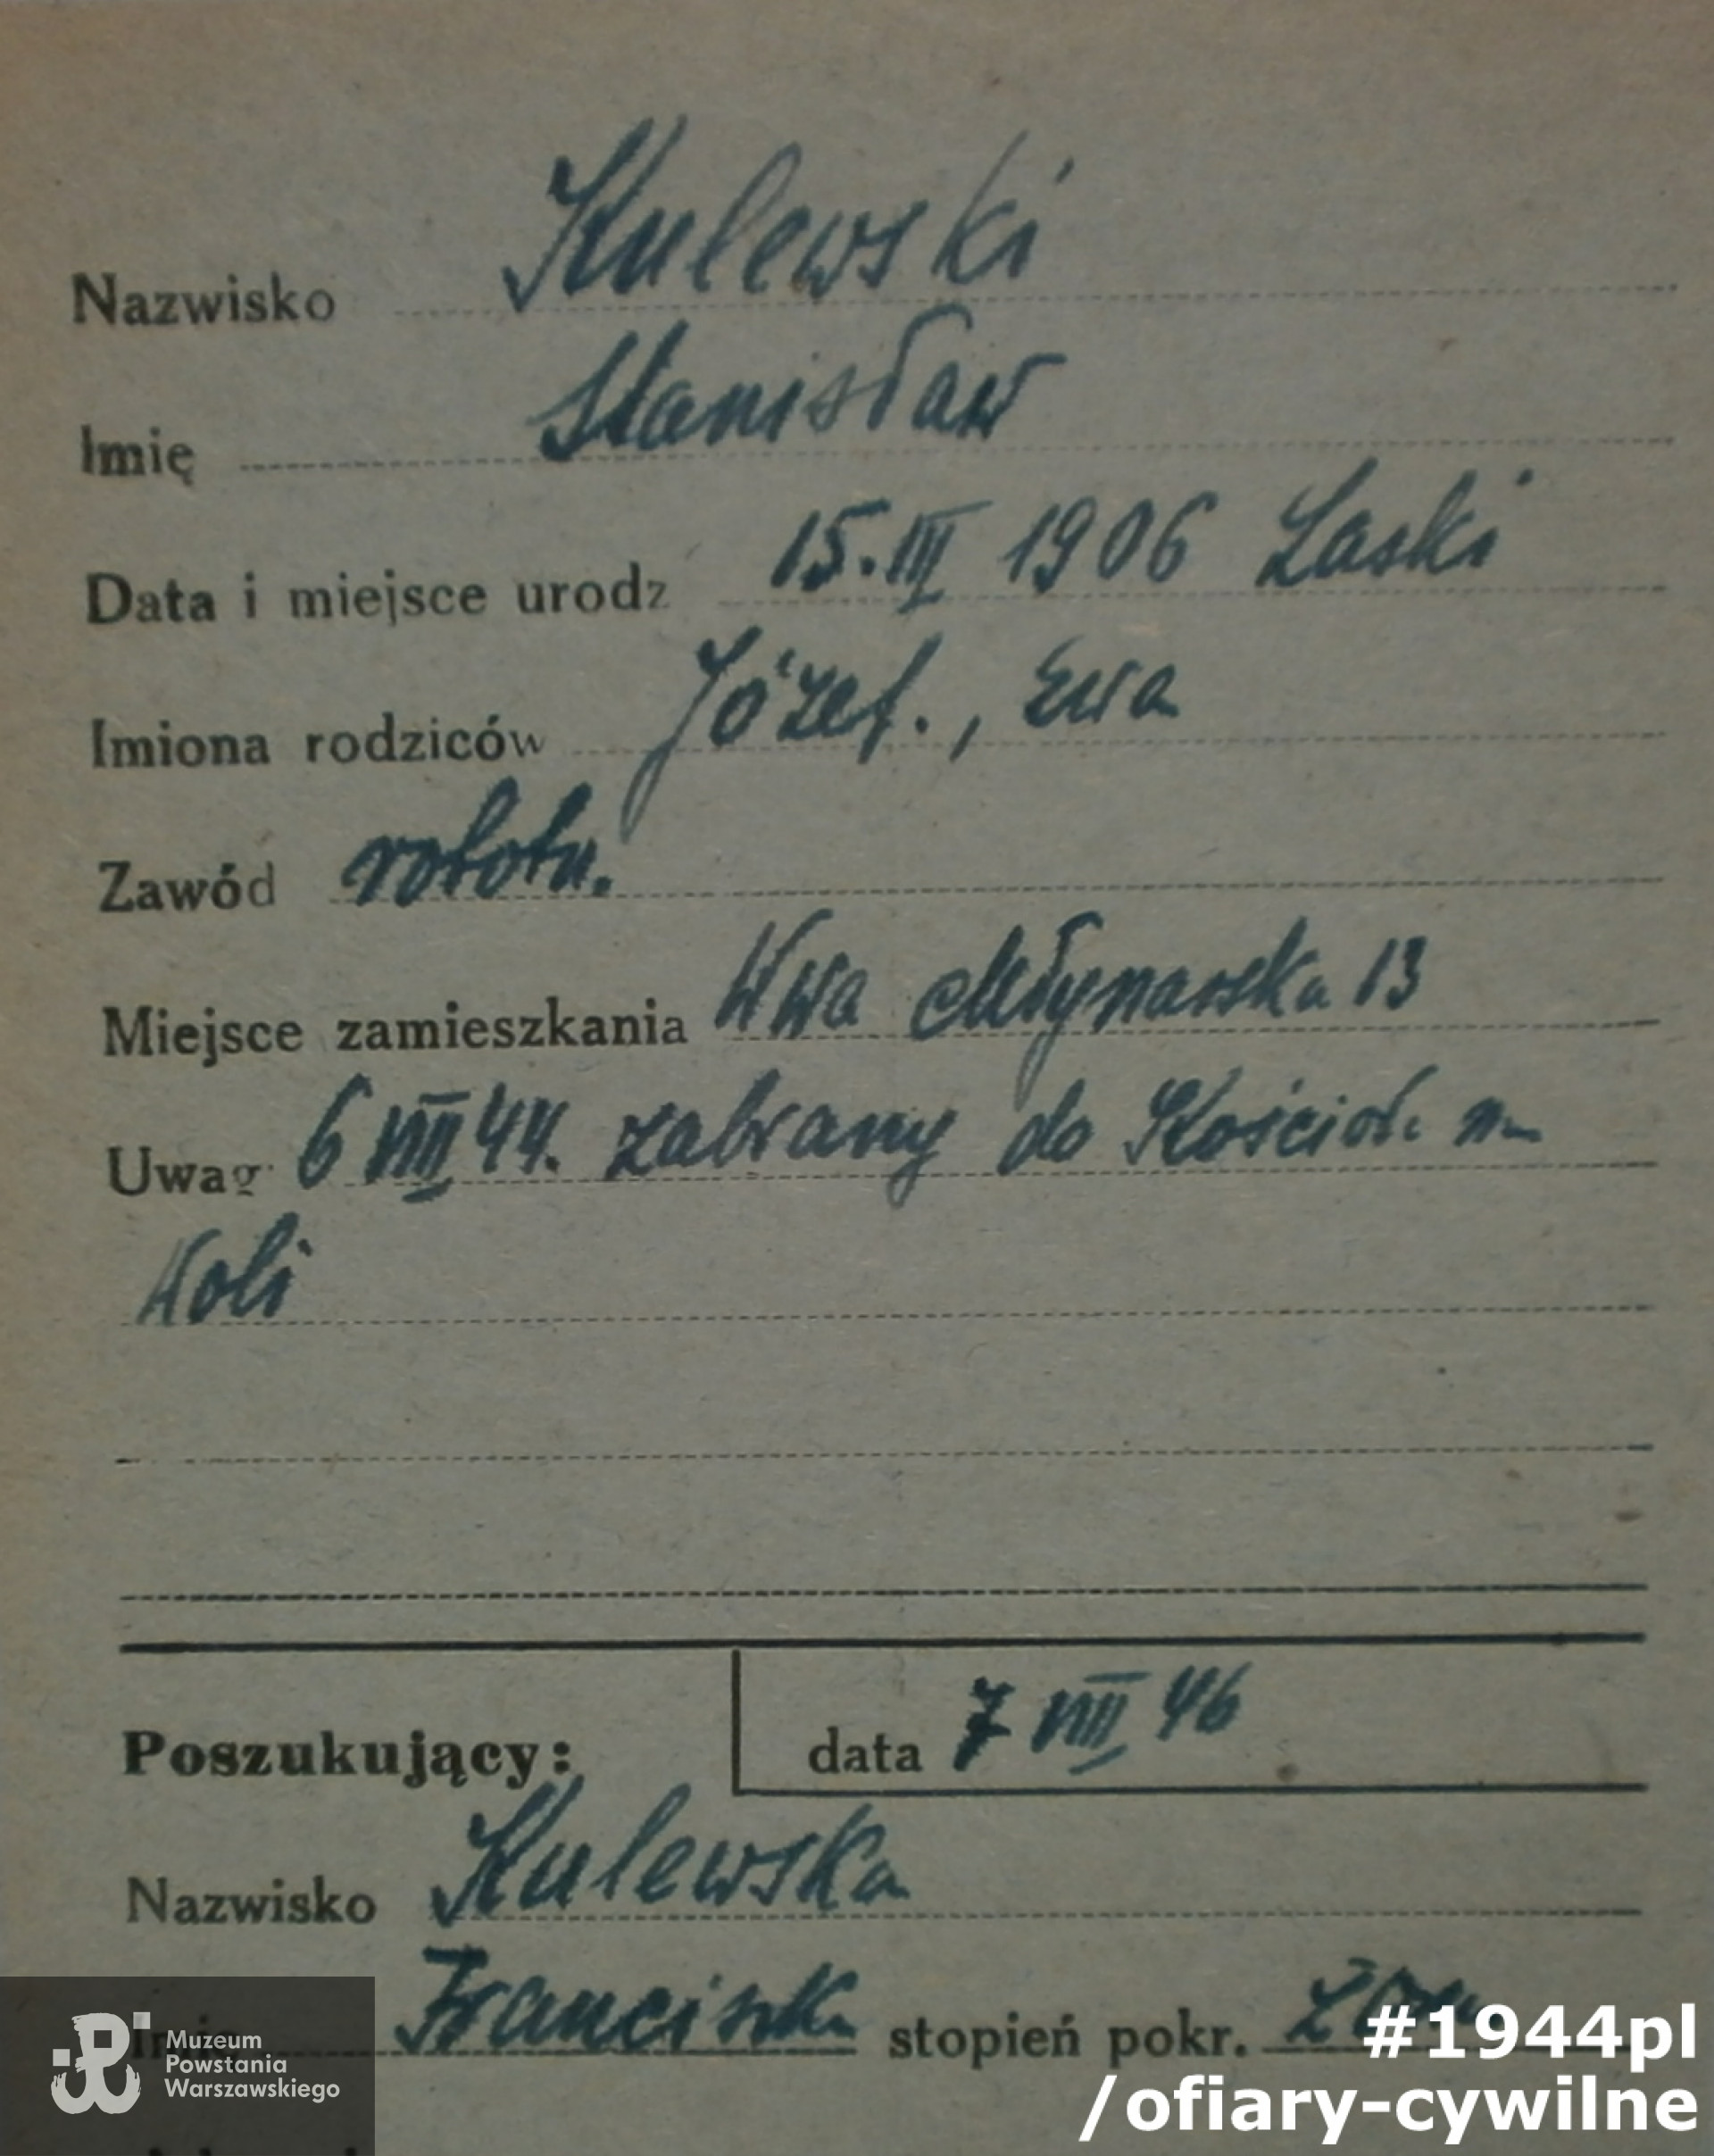 Nazwisko Kulewski
Imię Stanisław
Data i miejsce urodz 15.III 1906 Laski
Imiona rodziców Józef., Ewa
Zawód robotn.
Miejsce zamieszkania Wwa Młynarska 13
Uwag 6 VIII 44. zabrany do Kościoła na
Woli
Poszukujący: data 7 VIII 46
Nazwisko Kulewska
Franciszka stopień pokr.
Muzeum
Powstania
Warszawskiego
#1944pl
/ofiary-cywilne